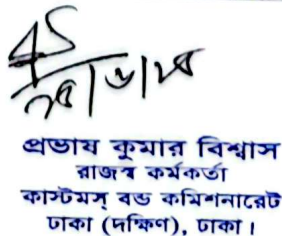 প্রভাষ কুমার বিশ্বাস
রাজস্ব কর্মকর্তা
কাস্টমস্ বন্ড কমিশনারেট
ঢাকা (দক্ষিণ), ঢাকা।